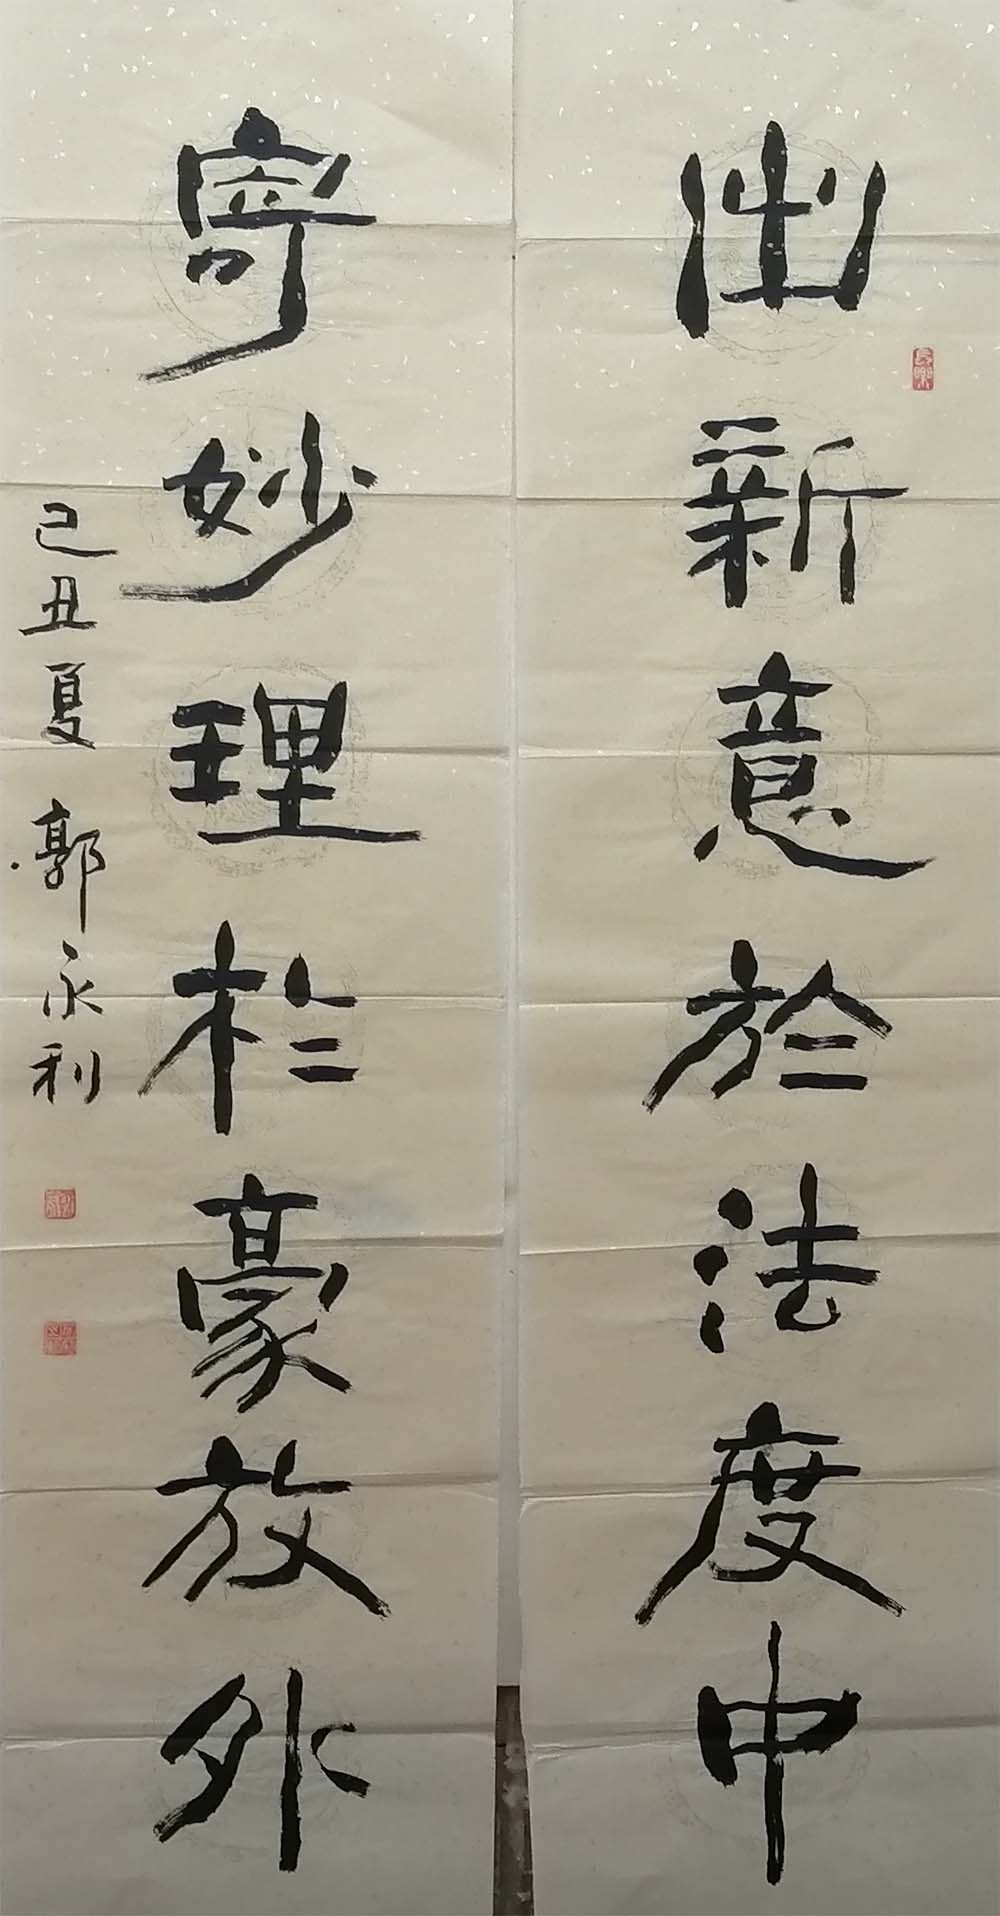 出新意於法度中
寄妙理於豪放外
己丑夏 郭永利